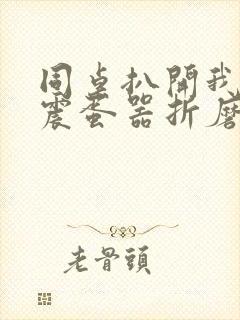 同桌扒開我
震蛋器折磨
老骨頭